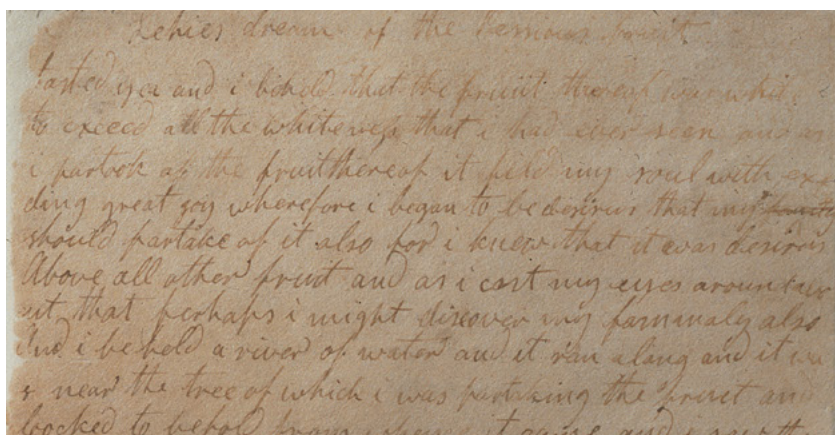 Lehies dream of the Pressious fruit
tasted yea and i behold that the fruiit thereof was whit
to exceed all the whiteness that i had ever seen and as
i partook of the fruitthereof it field my soul with exe
ding great goy wherefore i began to be desirus that my family
should partake of it also for i knew that it was desirus
Above all other fruit and as i cast my eyes around
ut that perhaps i might discover my fammaly also
And i beheld a river of water and it ran along and it wa
s near the tree of which i was partaking the fruit and
loocked to behold from whence it came and i saw the